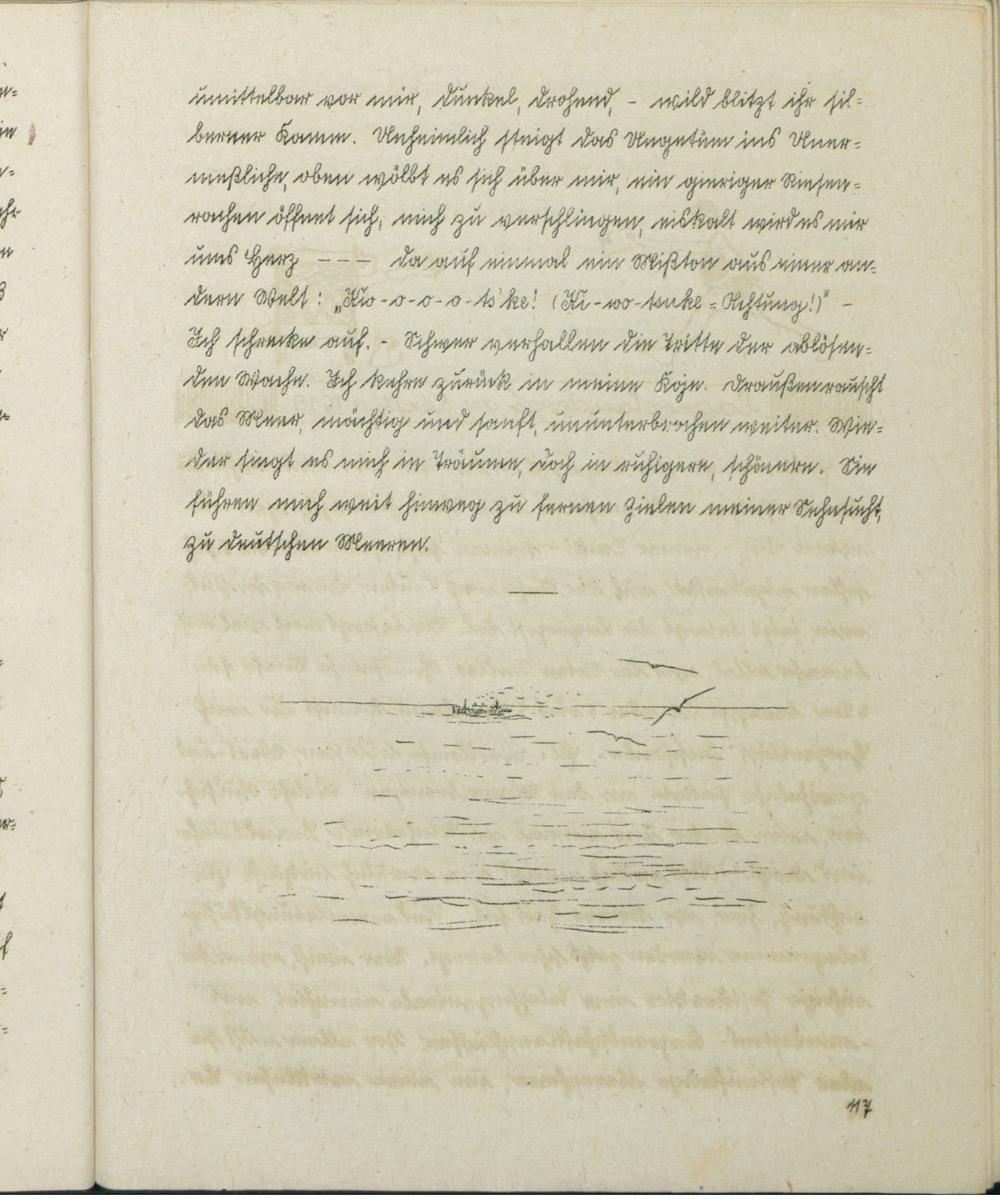 unmittelbar vor mir, dunkel, drohend, - wild blitzt ihr sil-
berner Kamm. Unheimlich steigt das Ungetüm ins Uner-
meßliche, oben wölbt es sich über mir, ein gieriger Riesen-
rachen öffent sich, mich zu verschlingen, eiskalt wird es mir
ums Herz --- da auf einmal ein Mißton aus einer an-
dern Welt: „Kio-o-o-o-ts'ke! (Ki-wo-tsuke = Achtung!)" -
Ich schrecke auf. - Schwer verhallen die Tritte der ablösen-
den Wache. Ich kehre zurück in meine Koje. Draußen rauscht
das Meer, mächtig und sanft, ununterbrochen weiter. Wie-
der singt es mich in Träume, doch in ruhigere, schönere. Sie
führen mich weit hinweg zu fernen Zielen meiner Sehnsucht,
zu deutschen Meeren.
117